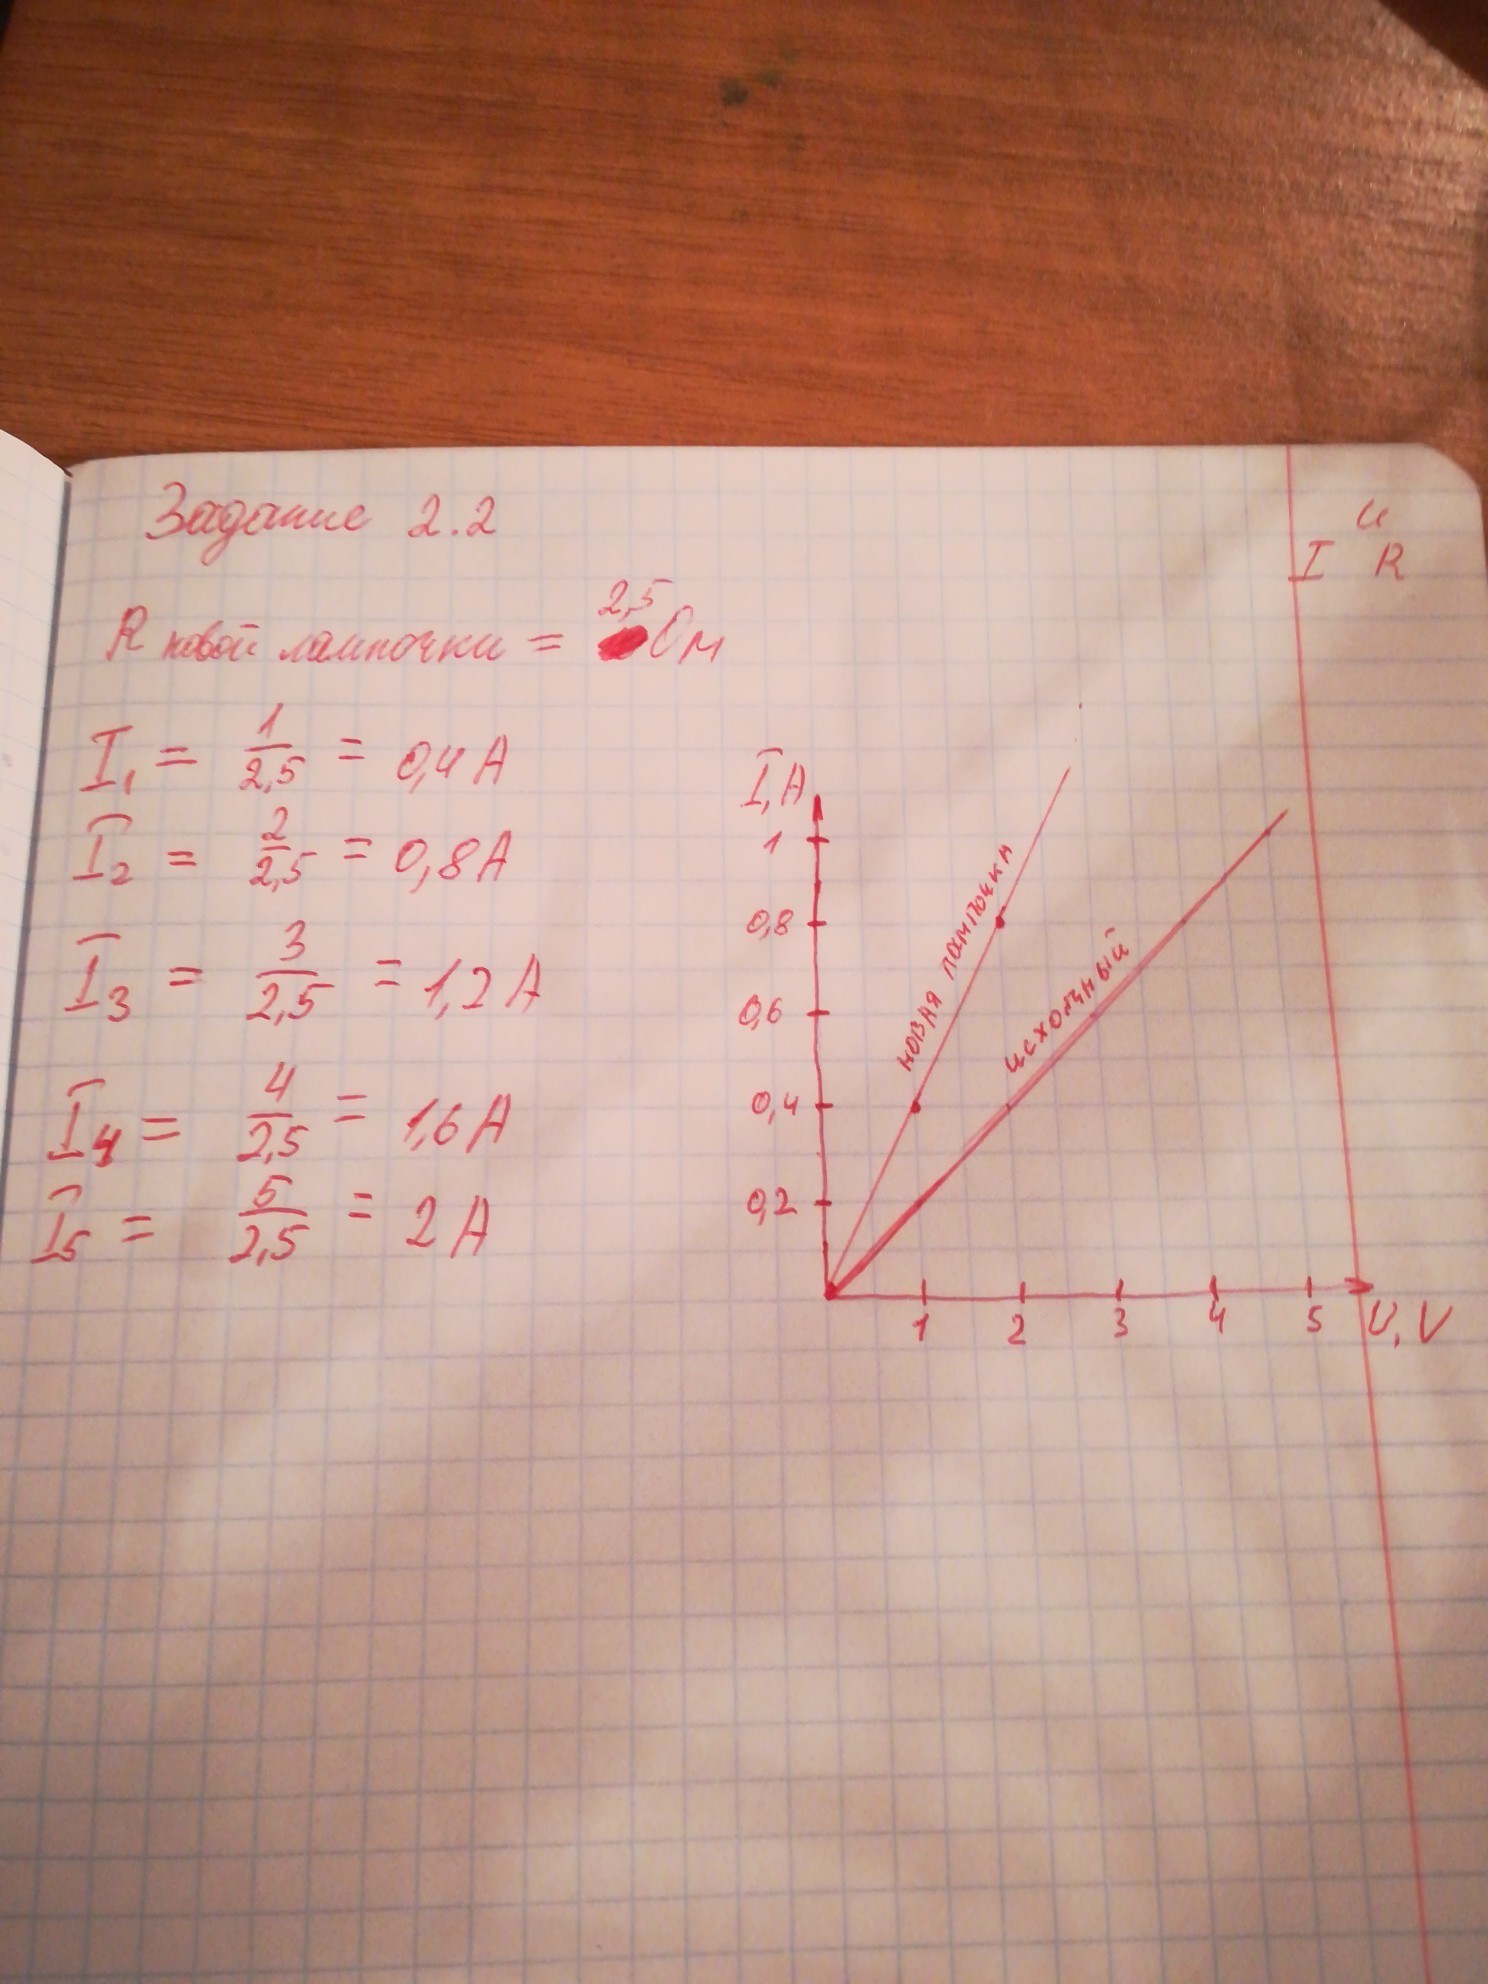 Задание 2.2
U
I R
R новой лампочки = 2,5 Ом
I₁ = 1/2,5 = 0,4 А
I₂ = 2/2,5 = 0,8 А
I₃ = 3/2,5 = 1,2 А
I₄ = 4/2,5 = 1,6 А
I₅ = 5/2,5 = 2 А
I, А
1
0,8
0,6
0,4
0,2
новая лампочка
исходный
1 2 3 4 5 U, V